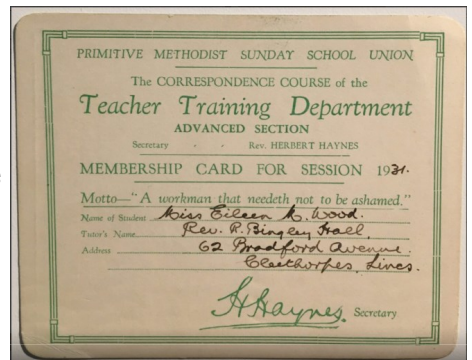 PRIMITIVE METHODIST SUNDAY SCHOOL UNION
The CORRESPONDENCE COURSE of the
Teacher Training Department
ADVANCED SECTION
Secretary - - Rev. HERBERT HAYNES
MEMBERSHIP CARD FOR SESSION 1931.
Motto—"A workman that needeth not to be ashamed."
Name of Student Miss Eileen M. Wood.
Tutor's Name Rev. P. Bingley Hall.
Address 62 Bradford Avenue.
Cleethorpes, Lincs.
H Haynes Secretary